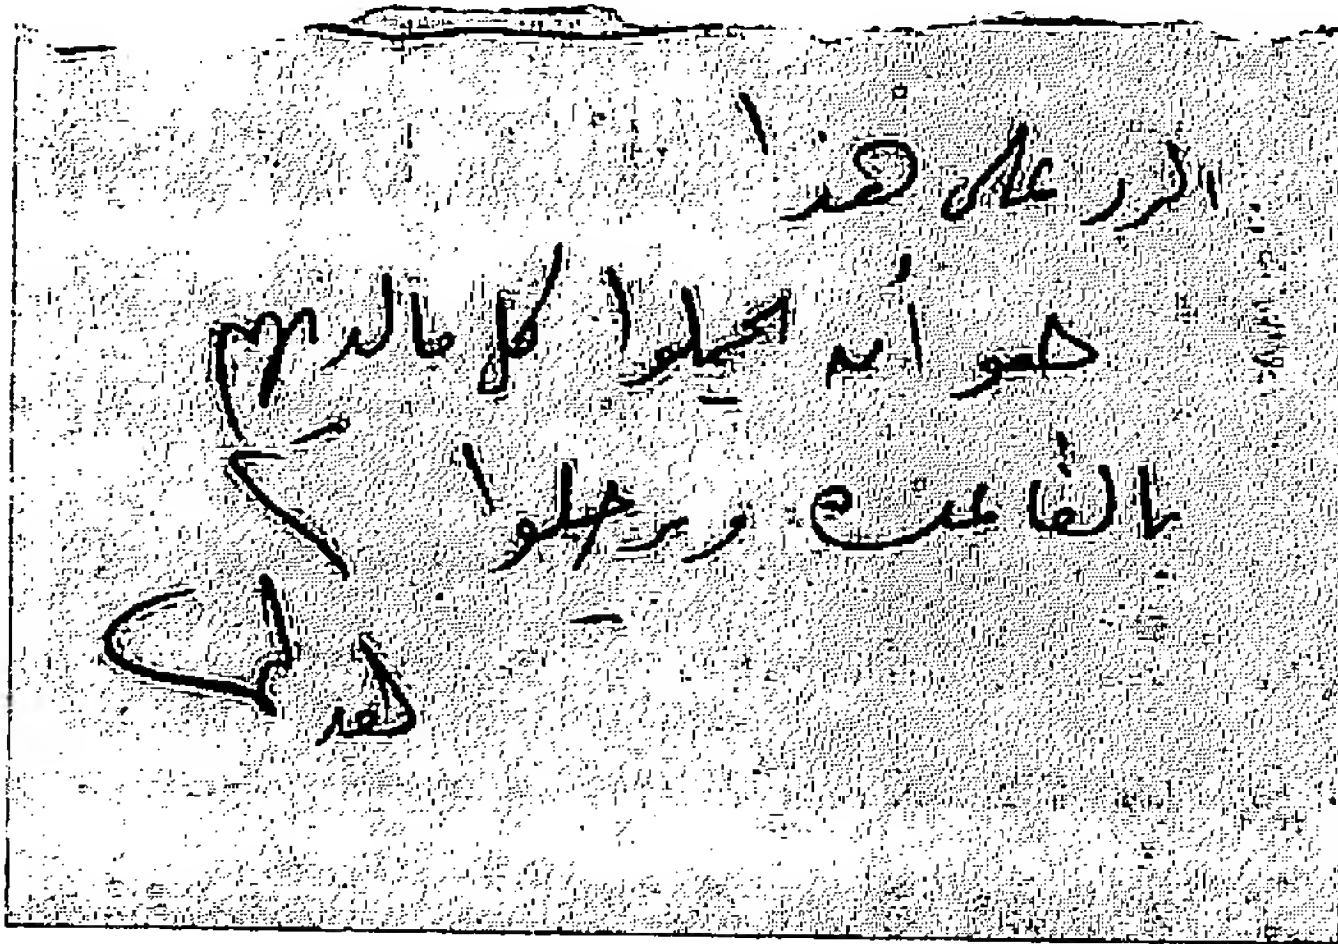 الرد على هذا
هو أن يحملوا كل ما لديهم
بالقا عدة ويرحلوا